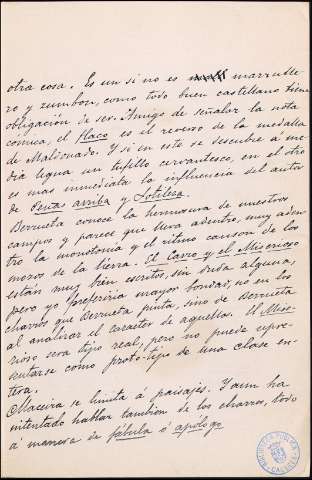 otra cosa. Es un si no es marrulle
ro y zumbon, como todo buen castellano tiene
obligación de ser. Amigo de señalar la nota
cómica, el flaco es el reverso de la medalla
de Maldonado. Y si en este se descubre á me-
dia legua un tufillo cervantesco, en el otro
es mas inmediata la influencia del autor
de Peñas arriba y Sotileza.
Berrueta conoce la hermosura de nuestros
campos y parece que lleva adentro, muy aden
tro la monotonia y el ritmo canson de los
moros de la tierra. El Casco y el Misterioso
están muy bien escritos, sin duda alguna,
pero yo preferiria mayor bondad, no en los
charros que Berrueta pinta, sino de Berrueta
al analizar el caracter de aquellos. El Miste-
rioso sera tipo real, pero no puede repre-
sentarse como proto-tipo de una clase en-
tera.
Maceira se limita á paisajes. Y aun ha
intentado hablar tambien de los charros, todo
á manera de fábula ó apólogo
BIBLIOTECA PÚBLICA
CACERES